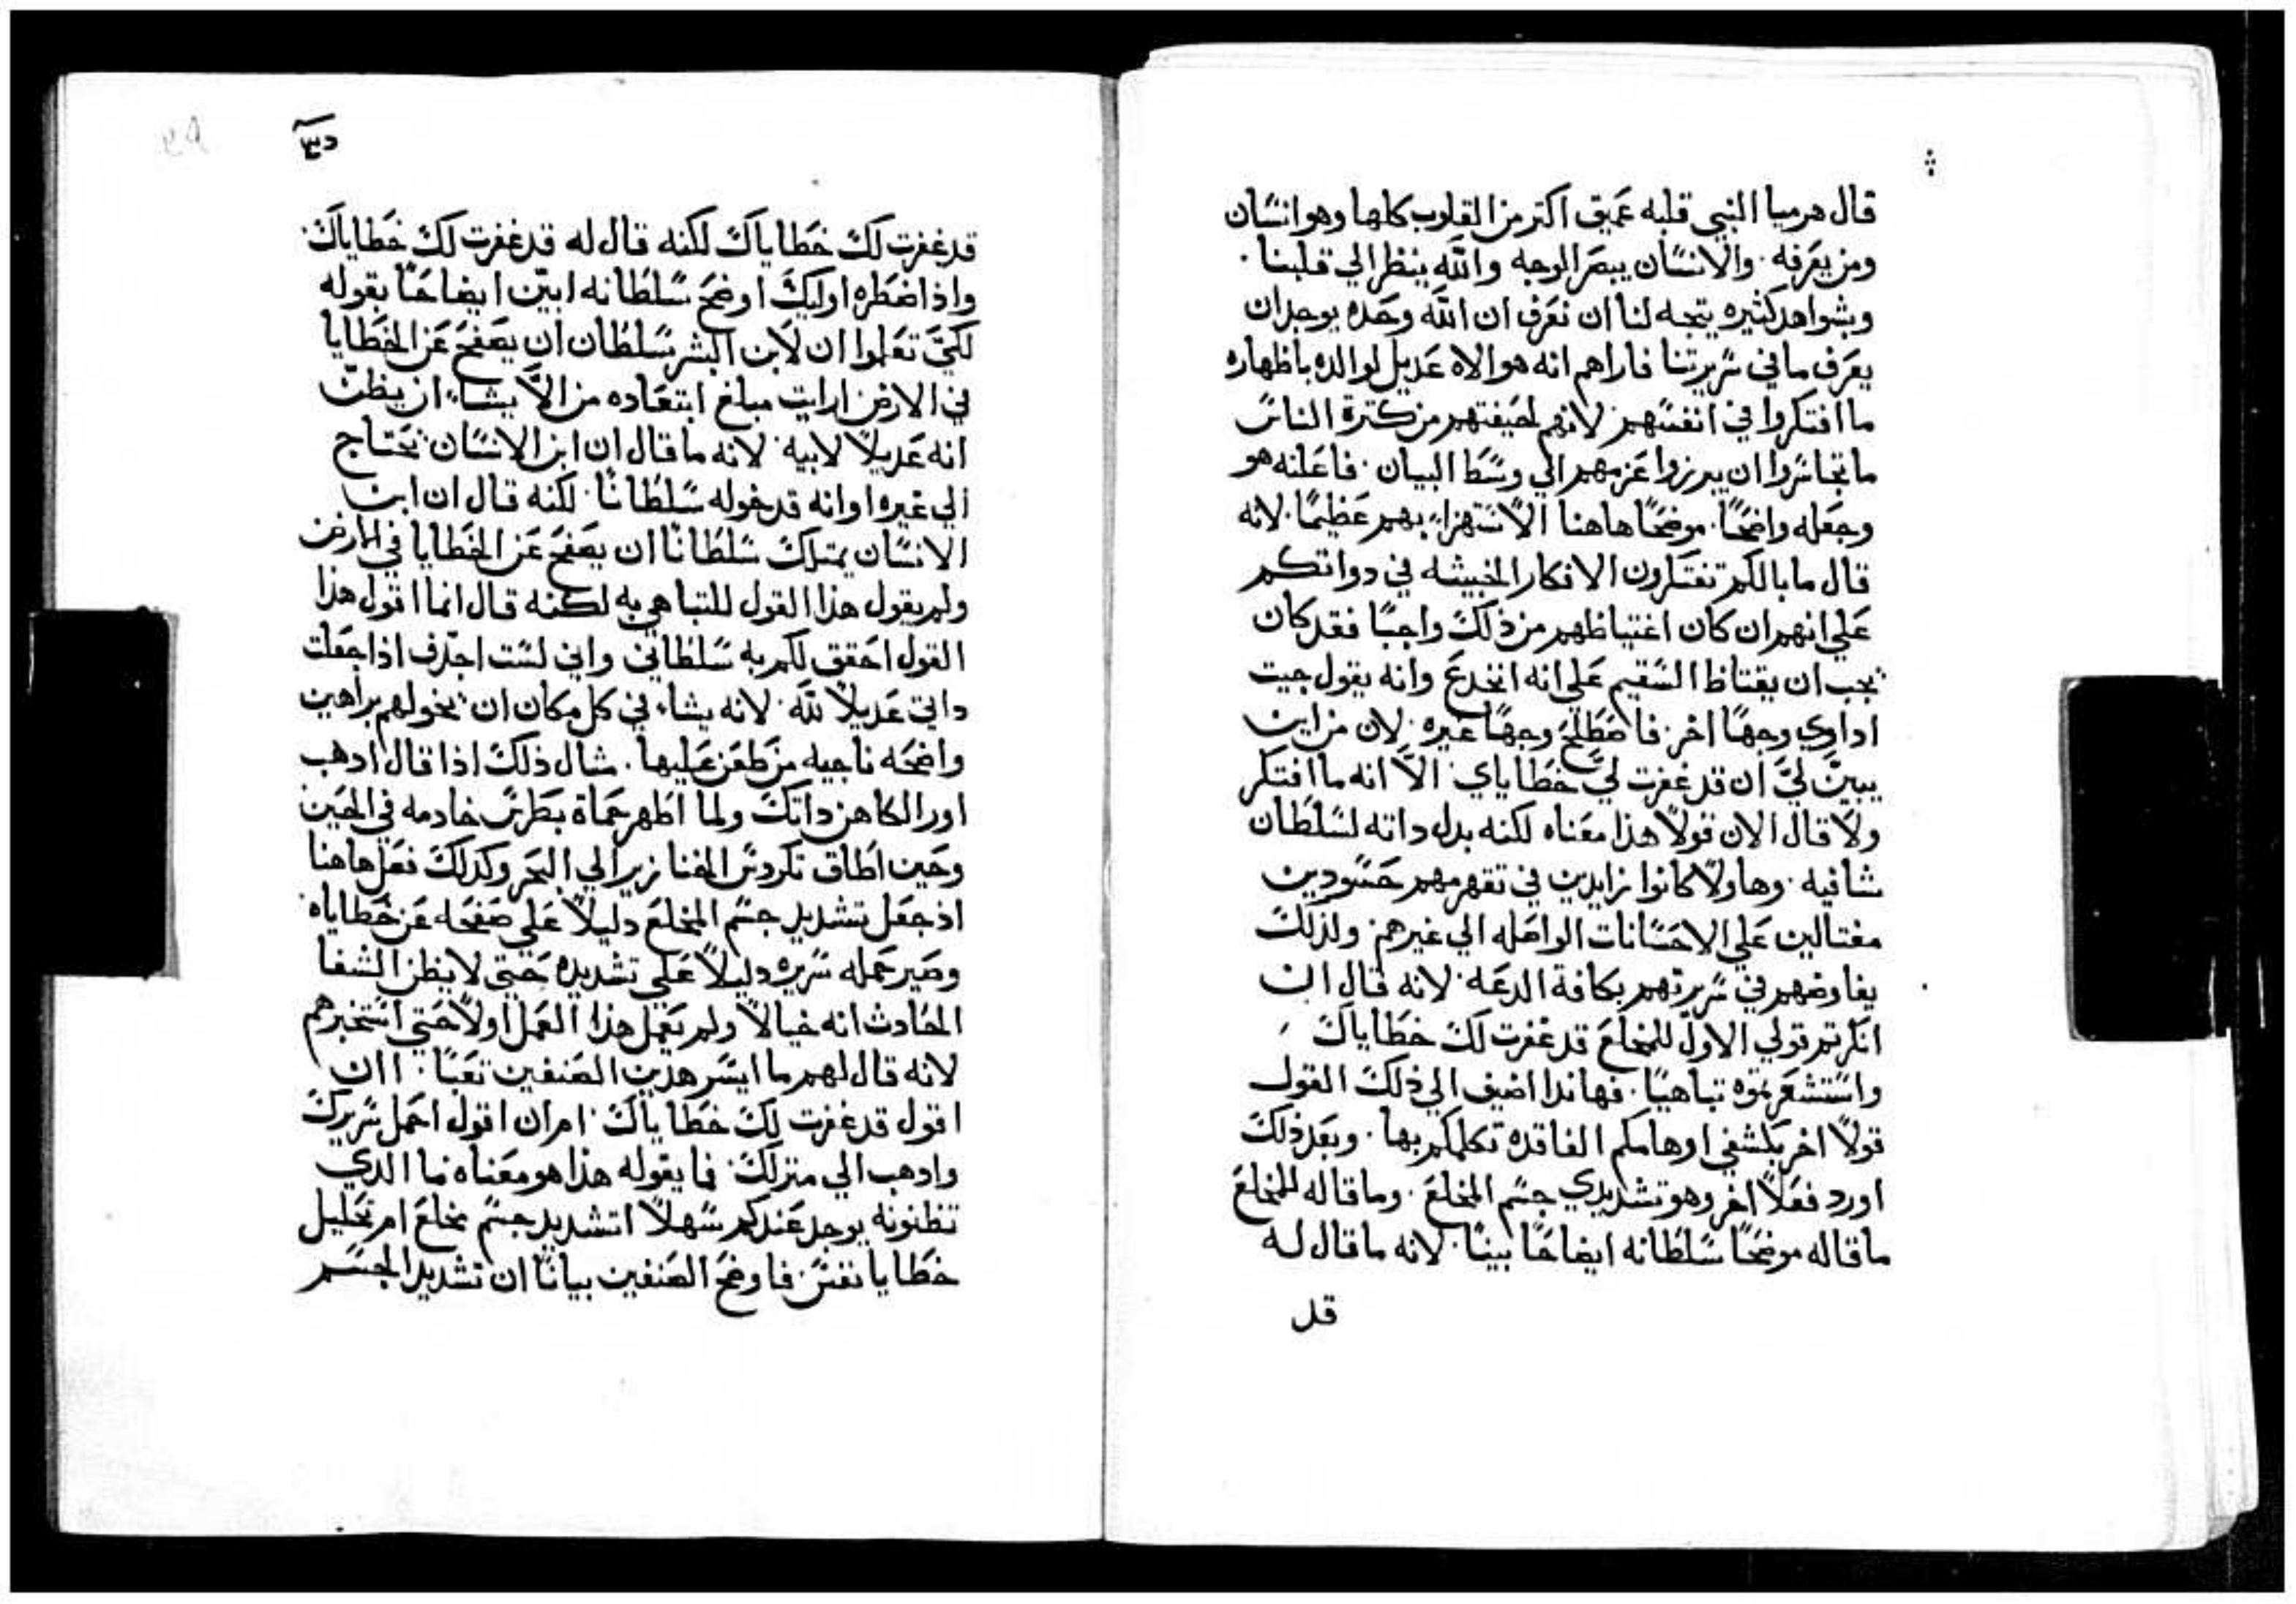 قال هرميا النبي قلبه عميق اكتر من القلوب كلها وهو انسان
ومن يعرفه. والانسان يبصر الوجه والله ينظر الي قلبنا.
وبشواهد كثيره يتجه لنا ان نعرف ان الله وحده يوجد ان
يعرف ما في سريرتنا فاراهم انه هو الاه عديل لوالده باظهاره
ما افتكروا في انفسهم لانهم لخيفتهم من كترة الناس
ما تجاسروا ان يبرزوا عزمهم الي وسط البيان. فاعلنه هو
وجعله واضحًا. موضحًا هاهنا الاستهزاء بهم عظيمًا. لانه
قال ما بالكم تفتكرون الافكار الخبيثه في دواتكم
علي انهم ان كان اغتياظهم من ذلك واجبًا فقد كان
يجب ان يغتاظ السقيم علي انه انخدع وانه يقول جيت
اداوي وجهًا اخر. فاصطلح وجهًا غيره. لان من اين
يبين ليَّ ان قد غفرت ليَّ خطاياي الاَّ انه ما افتكر
ولا قال الان قولاً هذا معناه لكنه بدل داته لسلطان
شافيه. وهاولا كانوا زايدين في تقهرمهم حسودين
مغتالين علي الاحسانات الواصله الي غيرهم ولذلك
يفاوضهم في سريرتهم بكافة الدعه. لانه قال ان
انكرتم قولي الاول للمخلع قد غفرت لك خطاياك
واستشعرتموه تباهيًا. فهاندا اضيف الي ذلك القول
قولاً اخر بكشفي اوهامكم الفاقده تكلمكم بها. وبعد ذلك
اورد فعلاً اخر وهو تشديدي جسم المخلع. وما قاله للمخلع
ما قاله موضحًا سلطانه ايضاحًا بينًا. لانه ما قال له
قد
قد غفرت لك خطاياك لكنه قال له قد غفرت لك خطاياك
واذ اضطره اوليك اوضح سلطانه ابين ايضاحًا بقوله
لكيّ تعلموا ان لابن البشر سلطان ان يصفح عن الخطايا
في الارض ارايت مبلغ ابتعاده من الاَّ يشاء ان يظن
انه عديلاً لابيه لانه ما قال ان ابن الانسان يحتاج
الي غيره او انه قد خوله سلطانًا. لكنه قال ان ابن
الانسان يمتلك سلطانًا ان يصفح عن الخطايا في الارض
ولم يقول هذا القول للتباهي به لكنه قال انما اقول هذا
القول احقق لكم به سلطاني واني لست اجدف اذا جعلت
داتي عديلاً لله. لانه يشاء في كل مكان ان يخولهم براهين
واضحه ناجيه من طعن عليها. مثال ذلك اذا قال ادهب
اور الكاهن داتك ولما اظهر حماة بطرس خادمه في الحين
وحين اطلق تكردس الخنازير الي البحر وكدلك فعل هاهنا
اذ جعل تشديد جسم المخلع دليلاً علي صفحه عن خطاياه
وصير حمله سريره دليلاً علي تشديده حتي لا يظن الشفا
الحادث انه خيالاً ولم يعمل هذا العمل اولاً حتي استخبرهم
لانه قال لهم ما ايسر هدين الصنفين تعبًا. اان
اقول قد غفرت لك خطاياك ام ان اقول احمل سريرك
وادهب الي منزلك فما يقوله هذا هو معناه فما الدي
تظنونه يوجد عندكم سهلاً اتشديد جسم مخلع ام تحليل
خطايا نفس. فاوضح الصنفين بيانًا ان تشديد الجسم